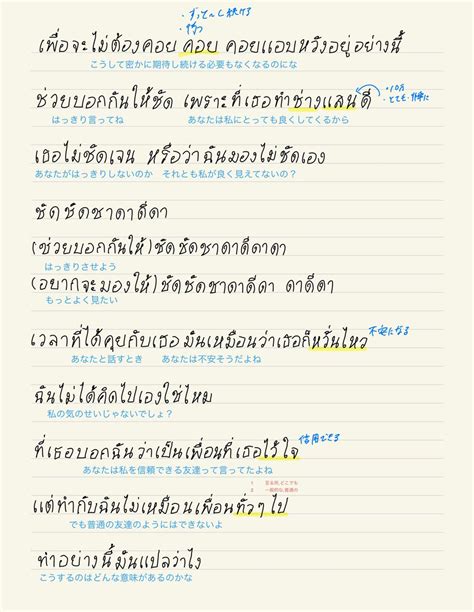 ずっと〜し続ける
待つ
เพื่อจะไม่ต้องคอย คอย คอยแอบหวังอยู่อย่างนี้
こうして密かに期待し続ける必要もなくなるのにな
ช่วยบอกกันให้ชัด เพราะที่เธอทำช่างแสนดี
・10万
・とても、非常に
はっきり言ってね あなたは私にとっても良くしてくるから
เธอไม่ชัดเจน หรือว่าฉันมองไม่ชัดเอง
あなたがはっきりしないのか それとも私が良く見えてないの？
ชัดชัดชาดาดีดา
(ช่วยบอกกันให้)ชัดชัดชาดาดีดาดา
はっきりさせよう
(อยากจะมองให้)ชัดชัดชาดาดีดา ดาดีดา
もっとよく見たい
เวลาที่ได้คุยกับเธอ มันเหมือนว่าเธอก็หวั่นไหว
不安になる
あなたと話すとき あなたは不安そうだよね
ฉันไม่ได้คิดไปเองใช่ไหม
私の気のせいじゃないでしょ？
ที่เธอบอกฉันว่าเป็นเพื่อนที่เธอไว้ใจ
信用できる
あなたは私を信頼できる友達って言ってたよね
1 至る所,どこでも
2 一般的な,普通の
แต่ทำกับฉันไม่เหมือนเพื่อนทั่วๆไป
でも普通の友達のようにはできないよ
ทำอย่างนี้มันแปลว่าไง
こうするのはどんな意味があるのかな